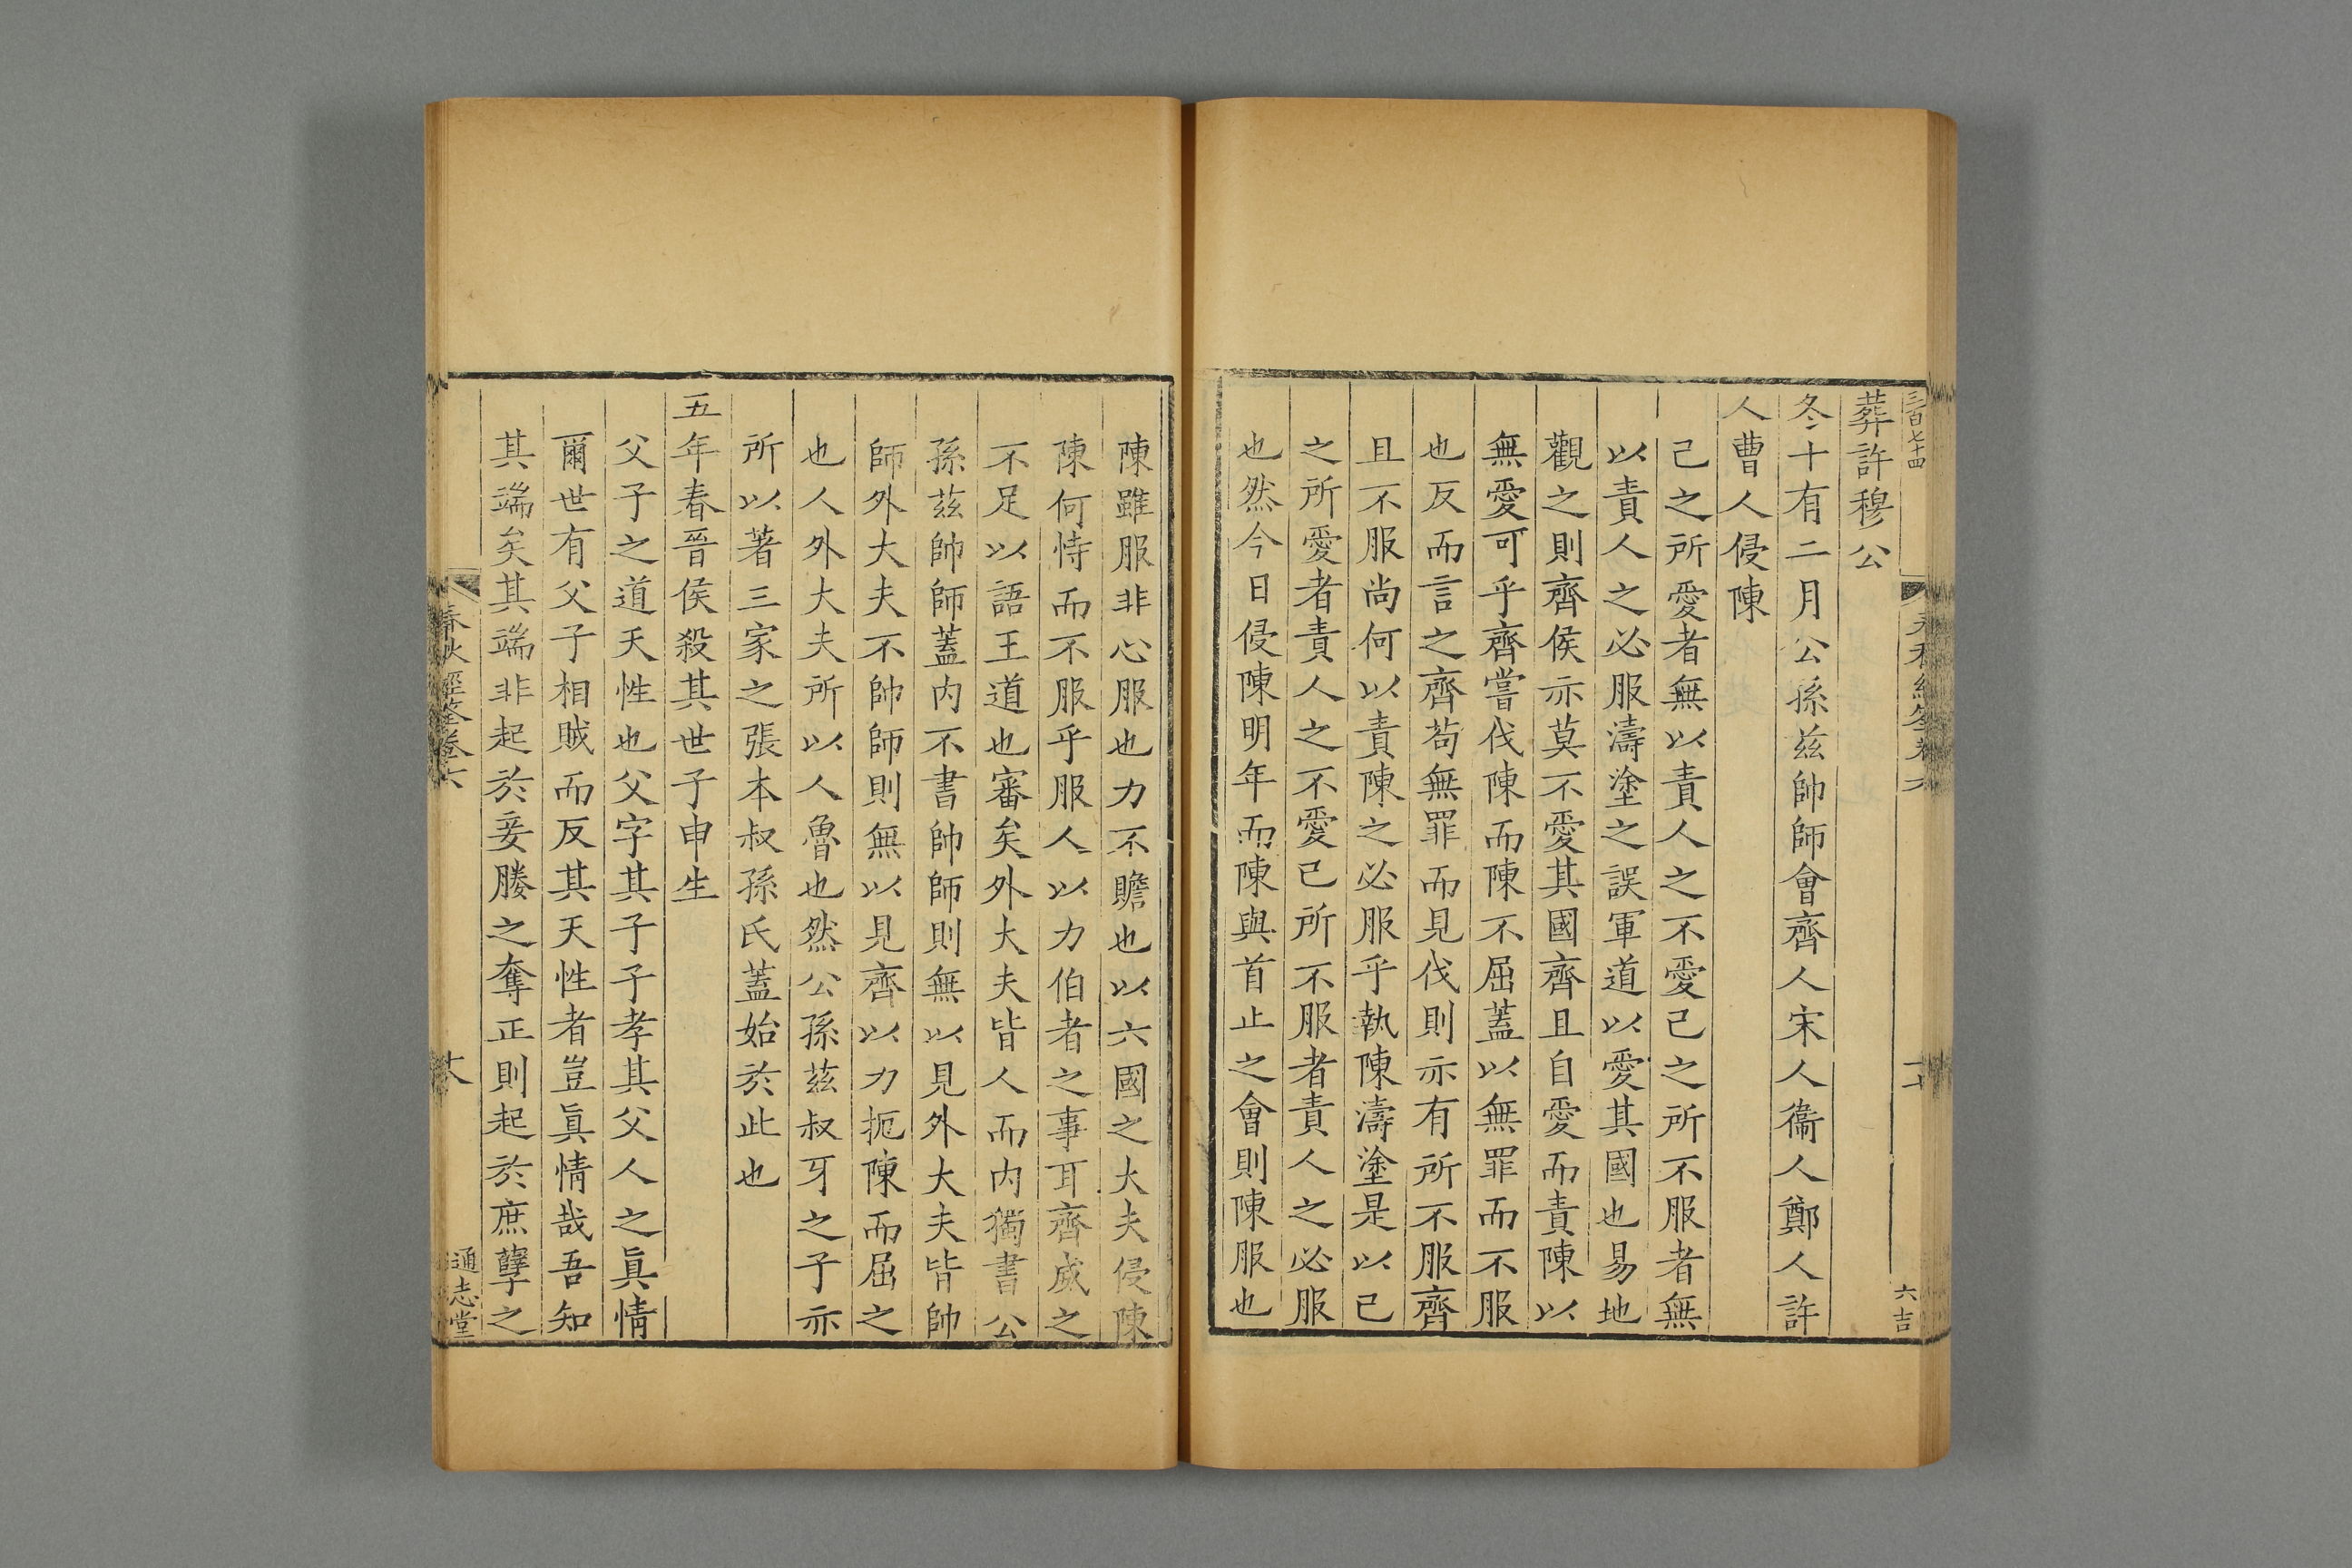 三百七十四
六吉
葬許穆公
冬十有二月公孫兹帥師會齊人宋人衞人鄭人許
人曹人侵陳
己之所愛者無以責人之不愛己之所不服者無
以責人之必服濤塗之誤軍道以愛其國也易地
觀之則齊侯亦莫不愛其國齊且自愛而責陳以
無愛可乎齊嘗伐陳而陳不屈蓋以無罪而不服
也反而言之齊苟無罪而見伐則亦有所不服齊
且不服尚何以責陳之必服乎執陳濤塗是以己
之所愛者責人之不愛己所不服者責人之必服
也然今日侵陳明年而陳與首止之會則陳服也
陳雖服非心服也力不贍也以六國之大夫侵陳
陳何恃而不服乎服人以力伯者之事耳齊威之
不足以語王道也審矣外大夫皆人而内獨書公
孫兹帥師蓋内不書帥師則無以見外大夫皆帥
師外大夫不帥師則無以見齊以力扼陳而屈之
也人外大夫所以人魯也然公孫兹叔牙之子亦
所以著三家之張本叔孫氏蓋始於此也
五年春晉侯殺其世子申生
父子之道天性也父字其子子孝其父人之眞情
爾世有父子相賊而反其天性者豈眞情哉吾知
其端矣其端非起於妾媵之奪正則起於庶孽之
春秋經筌卷六
十八
通志堂